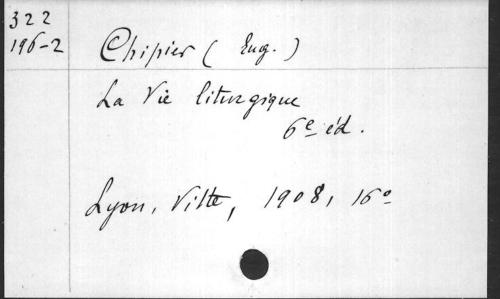 322
196-2
Chipier (Eug.)
La Vie liturgique
6e éd.
Lyon, Vitte, 1908, 16°